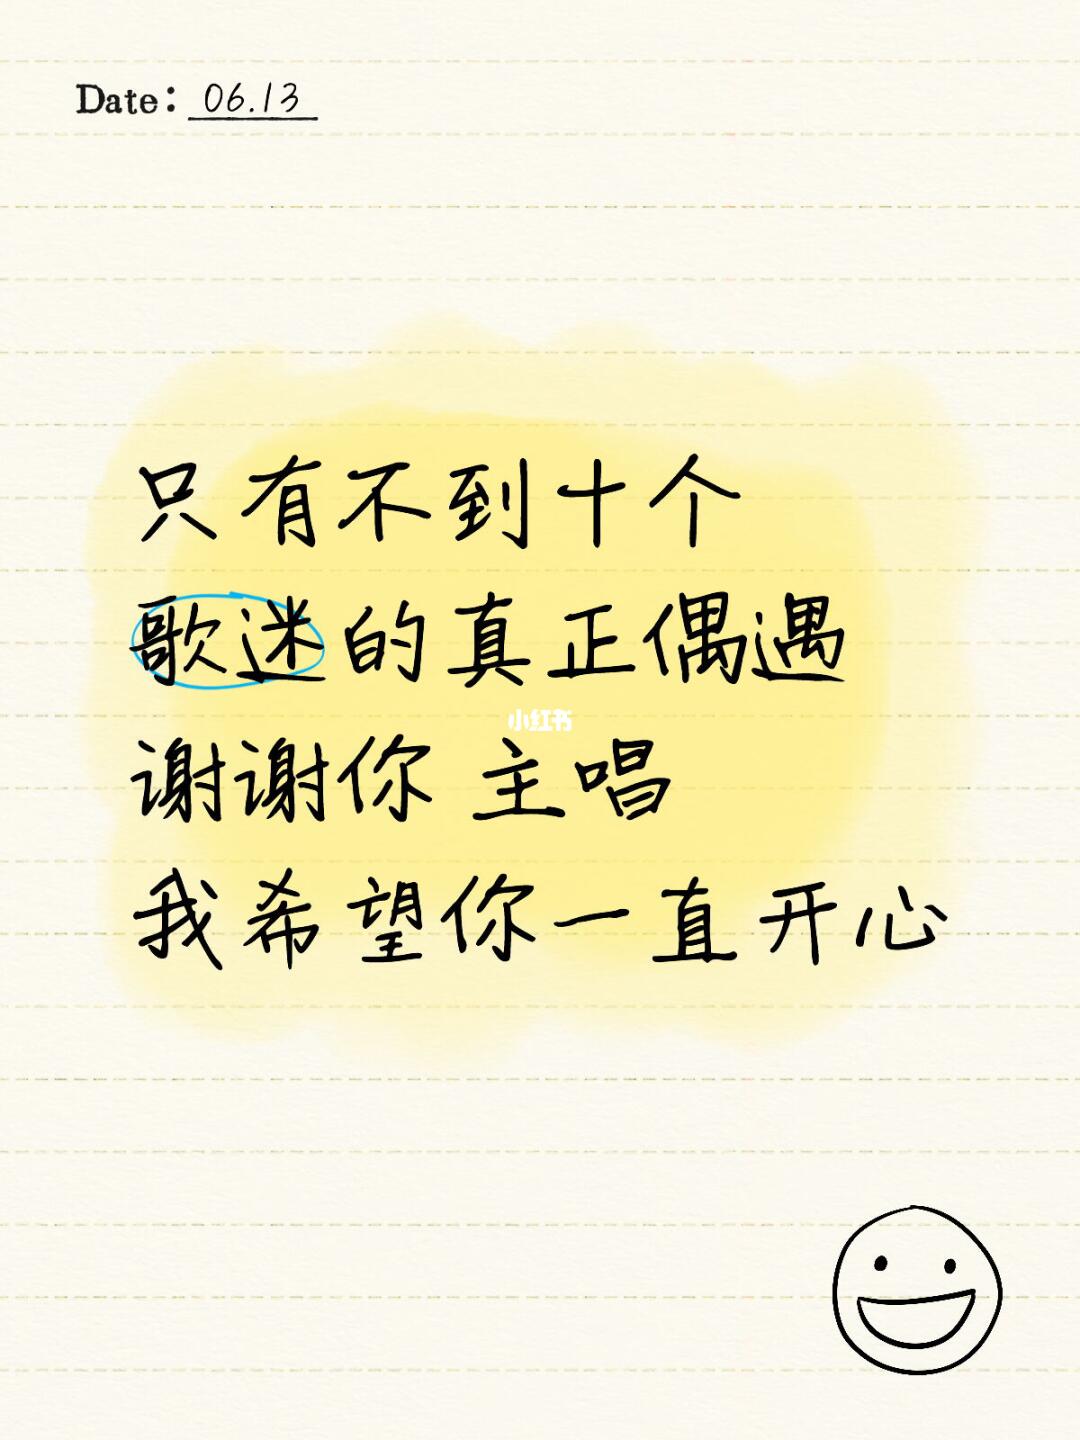 Date: 06.13
只有不到十个
歌迷的真正偶遇
小红书
谢谢你 主唱
我希望你一直开心